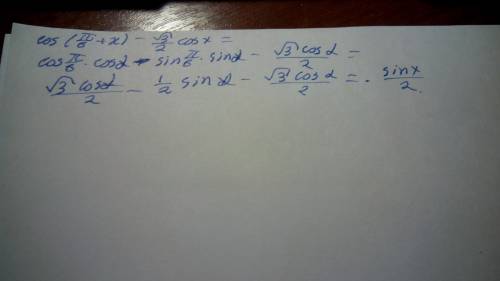 cos(π/6+x) - √3/2 cosx =
cos π/6 · cosα - sin π/6 · sinα - √3 cosα/2 =
√3 cosα/2 - 1/2 sinα - √3 cosα/2 = - sinx/2.